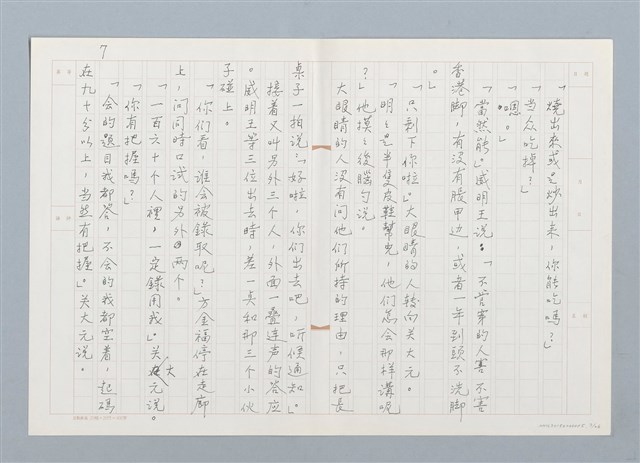 7
「燒出來或是炒出來，你能吃嗎？」
「当众吃掉？」
「嗯。」
「當然能」。威明王说：「不管穿的人害不害
香港脚，有没有長甲边，或者一年到頭不洗脚
。」
「只剩下你啦」。大眼睛的人转向关大元。
「明明是半隻皮鞋幫兒，他们怎会那样講呢
？」他摸摸後腦勺说。
大眼睛的人没有问他们所持的理由，只把長
桌子一拍说：「好啦，你们出去吧，听候通知。」
接着又叫另外三个人，外面一叠连声的答应
。威明王等三位出去時，差一点和那三个小伙
子碰上。
「你们看，谁会被錄取呢？」方金福停在走廊
上，问同時口试的另外两个。
「一百六十个人裡，一定錄用我」。关大元说。
「你有把握嗎？」
「会的題目我都答，不会的我都空着，起碼
在九十分以上，当然有把握」。关大元说。